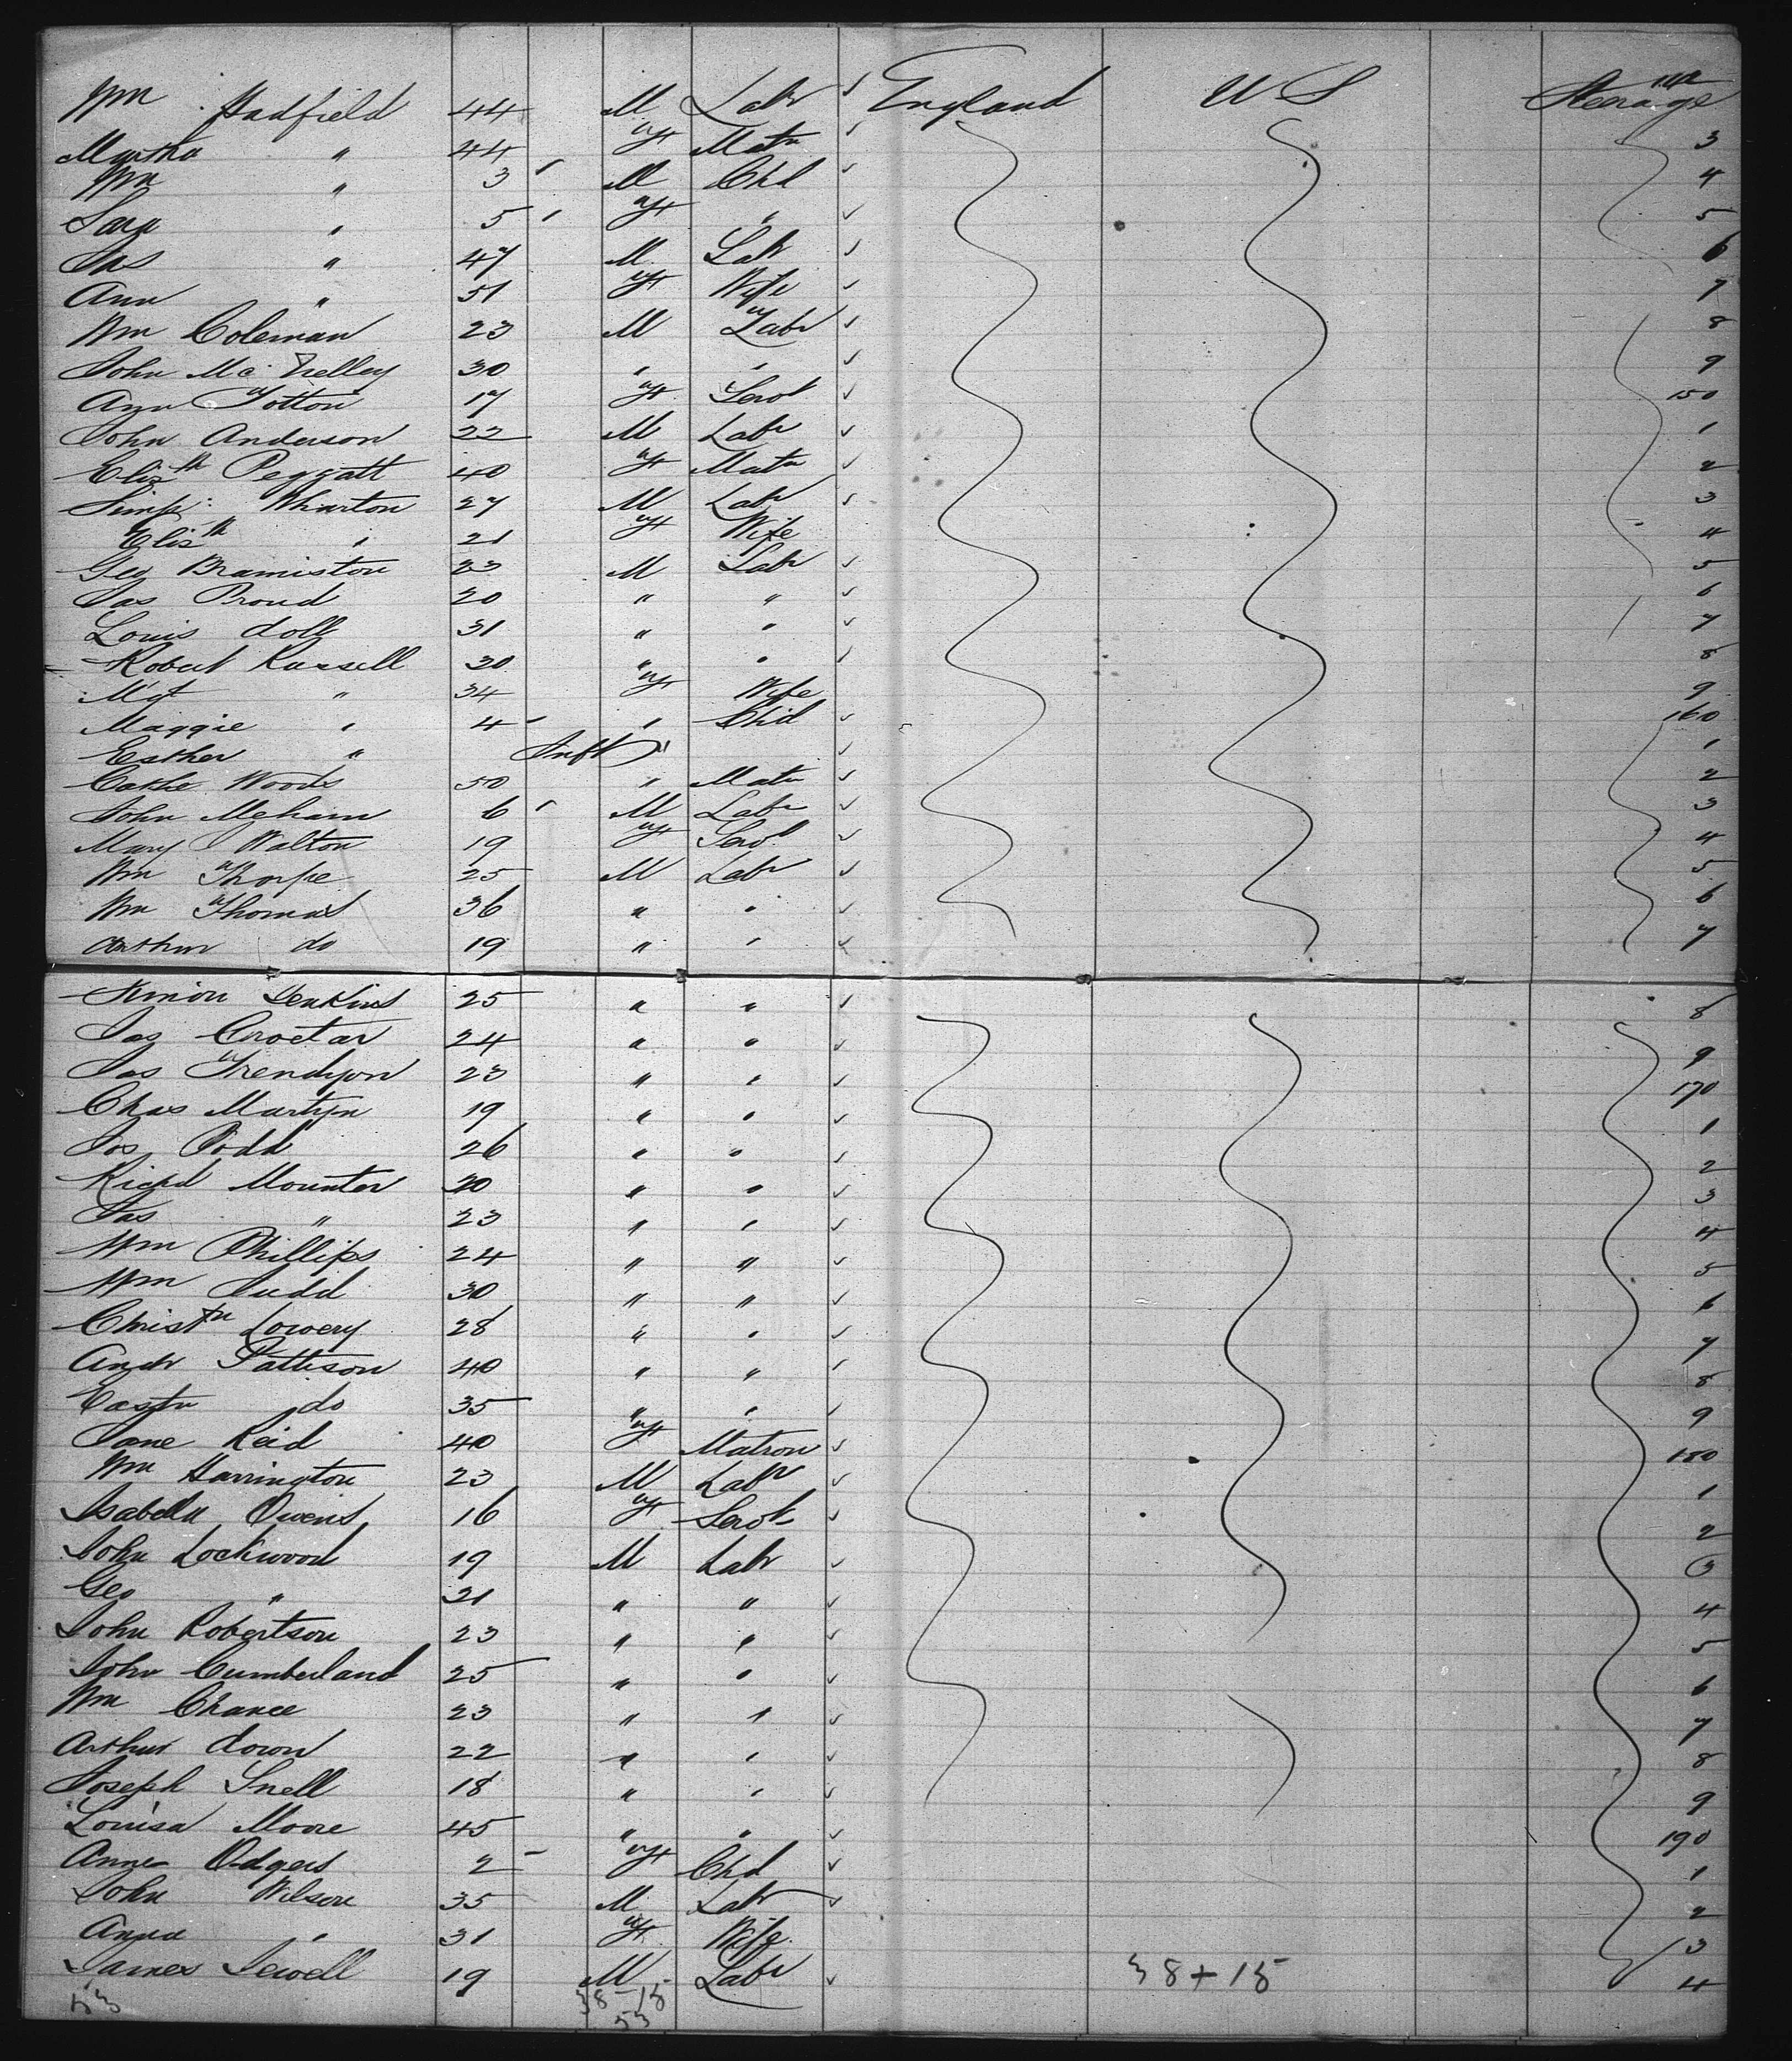 Wm Hadfield 44 M Labr England U S Steerage 142
Martha " 44 F Matn 3
Wm " 3 M Chd 4
Sara " 5 F " 5
Jas " 47 M Labr 6
Ann " 51 F Wife 7
Wm Coleman 23 M Labr 8
John Mc Nelley 30 " " 9
Ann Totton 17 F Servt 150
John Anderson 22 M Labr 1
Elizth Peggatt 40 F Matn 2
Simp: Wharton 27 M Labr 3
Elizth " 21 F Wife 4
Geo Bramiston 23 M Labr 5
Jas Proud 20 " " 6
Louis Doll 31 " " 7
Robert Russell 30 " " 8
Mgt " 34 F Wife 9
Maggie " 4 " Chid 160
Esther " Inft " 1
Cathe Woods 50 " Matn 2
John Meham 6 M Labr 3
Mary Walton 19 F Servt 4
Wm Thorpe 25 M Labr 5
Wm Thomas 36 " " 6
Arthur do 19 " " 7
Simon Jenkins 25 " " 8
Jas Croetar 24 " " 9
Jas Trendyon 23 " " 170
Chas Martyn 19 " " 1
Jos Podd 26 " " 2
Richd Mounter 30 " " 3
Jas " 23 " " 4
Wm Phillips 24 " " 5
Wm Judd 30 " " 6
Christn Lowery 28 " " 7
Andr Pattison 40 " " 8
do 35 " " 9
Jane Reid 40 F Matron 180
Wm Harrington 23 M Labr 1
Isabella Owens 16 F Servt 2
John Lockwood 19 M Labr 3
Geo " 21 " " 4
John Robertson 23 " " 5
John Cumberland 25 " " 6
Wm Chance 23 " " 7
Arthur Down 22 " " 8
Joseph Snell 18 " " 9
Louisa Moore 45 " " 190
Anne Odgers 2 F Chd 1
John Wilson 35 M Labr 2
Anna " 31 F Wife 3
James Jewell 19 M Labr 4
38+15
53 38-15
53